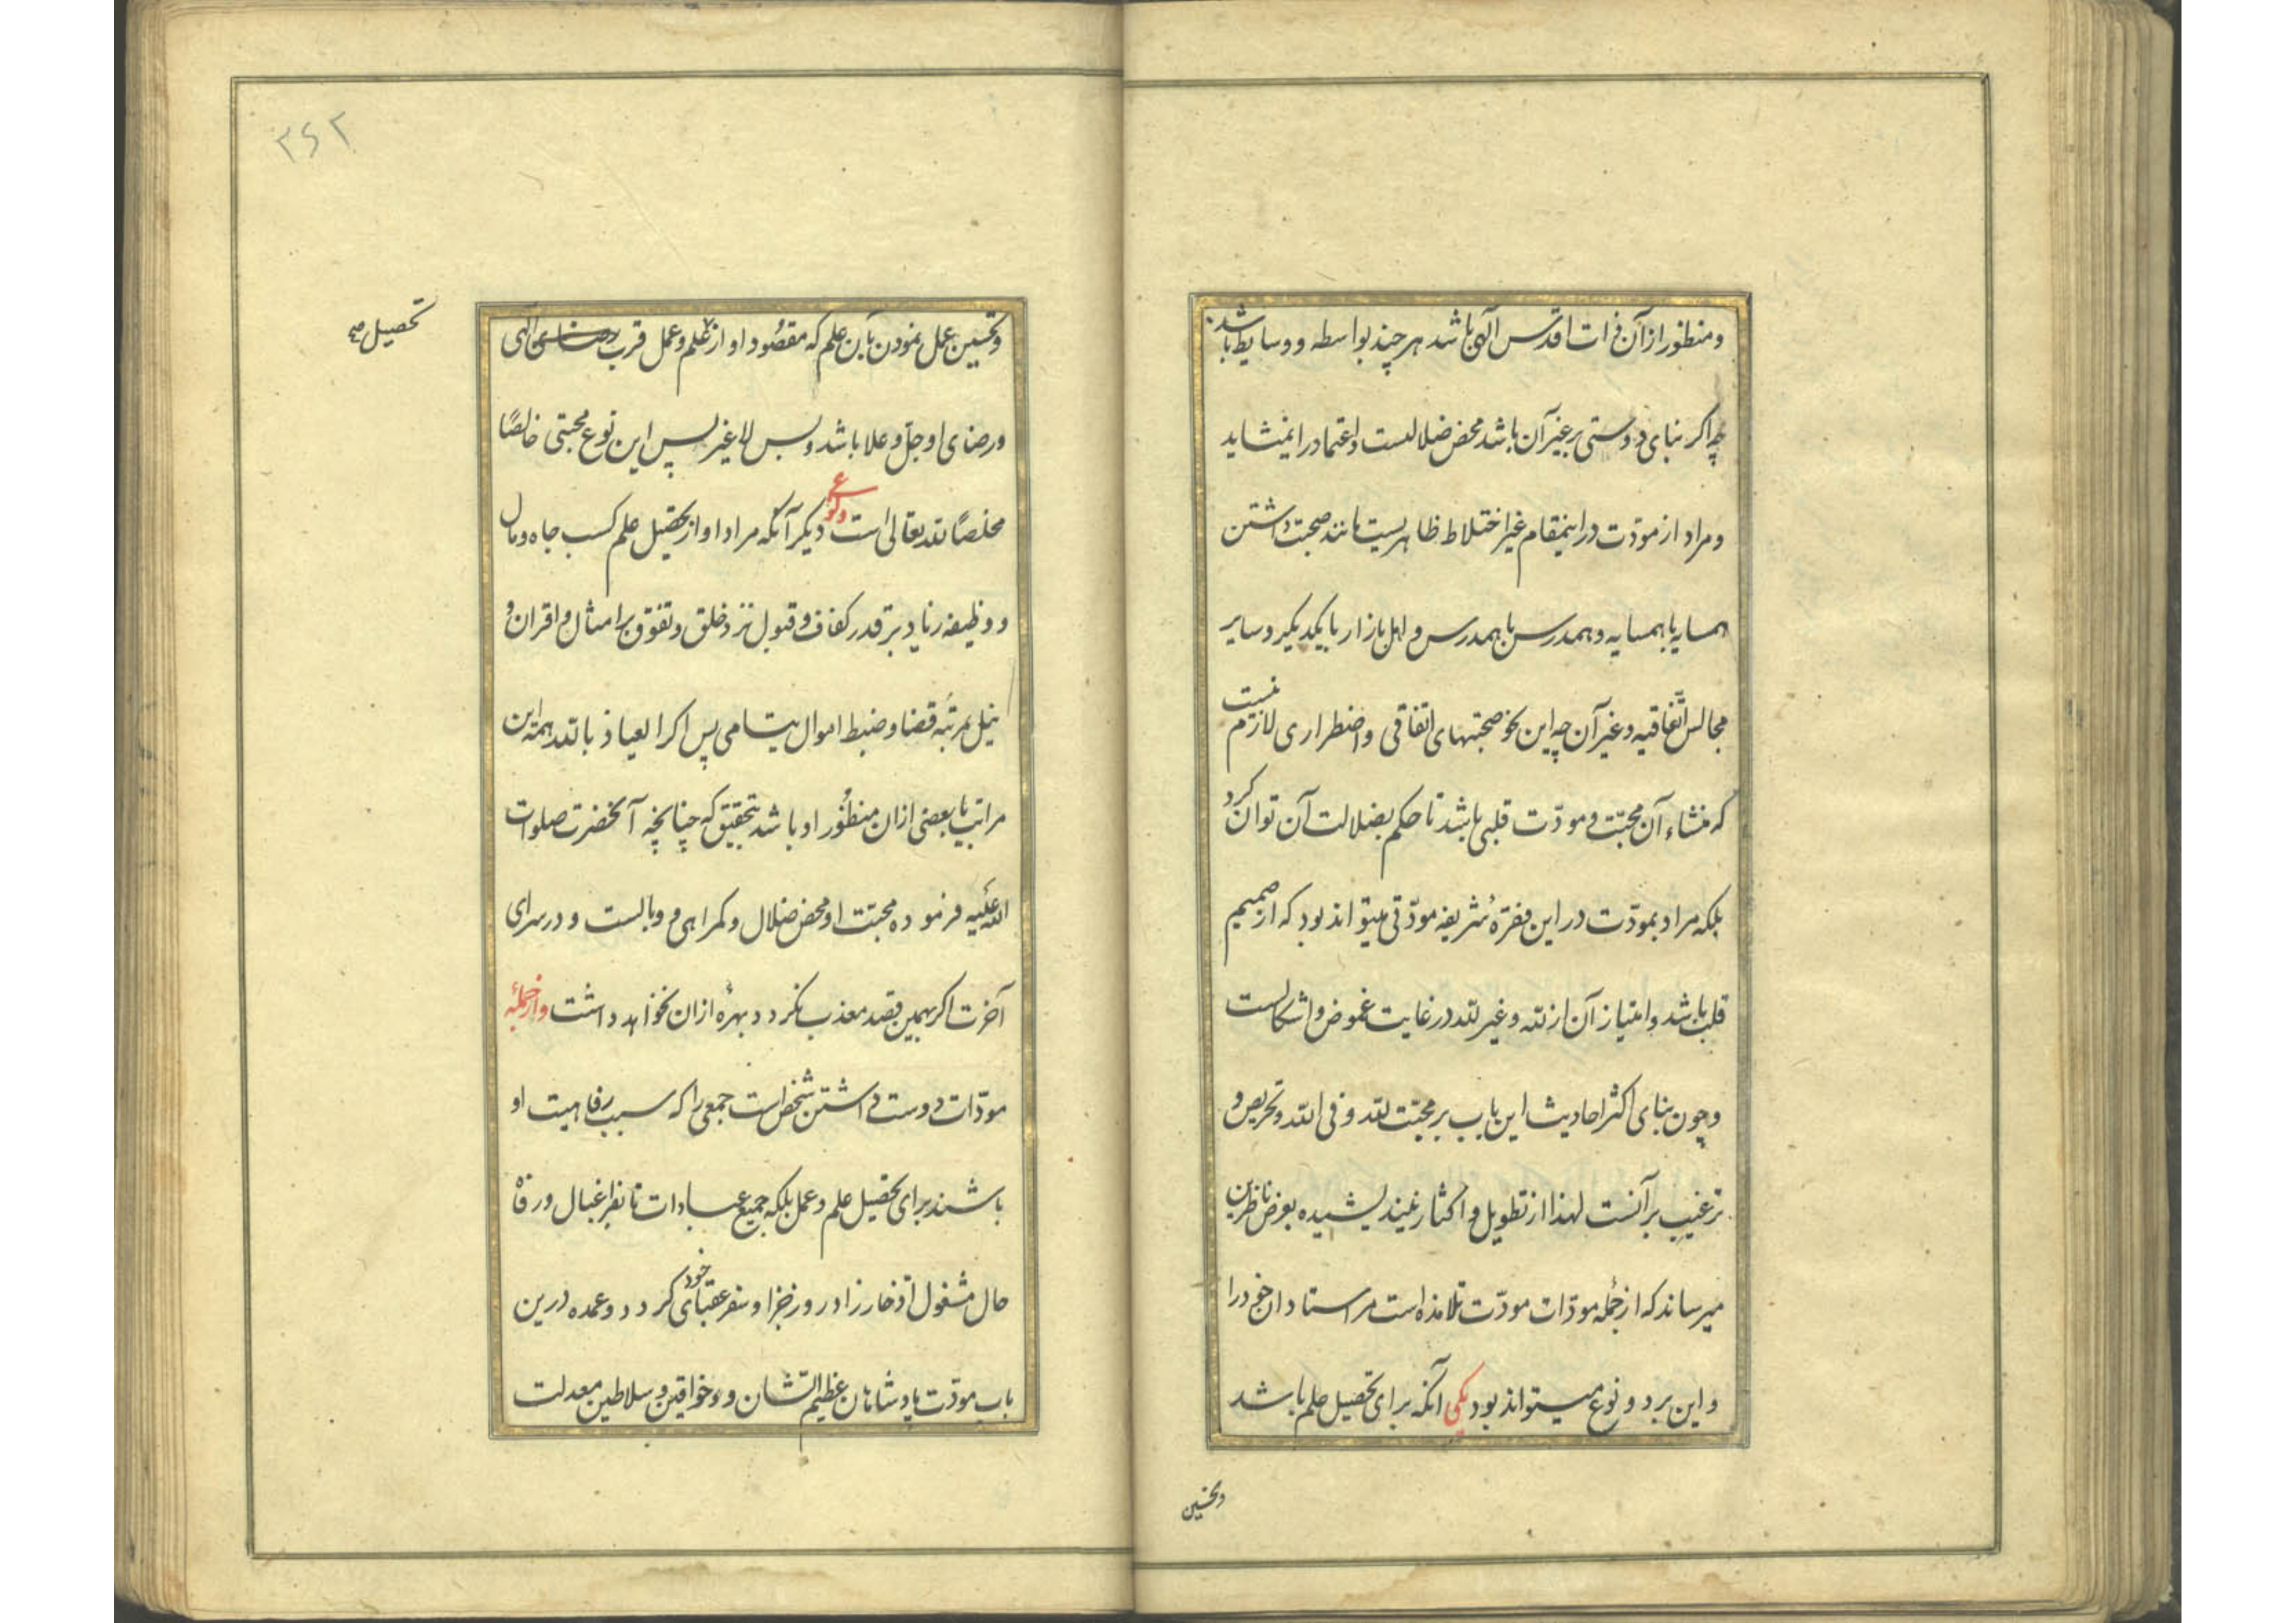 و منظور از آن ذات اقدس الهی باشد هر چند بواسطه و وسایط باشد
چه اکر بنای دوستی بر غیر آن باشد محض ضلالست و اعتماد را نمیشاید
و مراد از مودّت در اینمقام غیر اختلاط ظاهریست مانند صحبت داشتن
همسایه با همسایه و همدرس با همدرس و اهل بازار با یکدیکر و سایر
مجالس اتّفاقیه و غیر آن چه این نحو صحبتهای اتفاقی و اضطراری لازم نیست
که منشاء آن محبّت و مودّت قلبی باشد تا حکم بضلالت آن توان کرد
بلکه مراد بمودّت در این فقرهٔ شریفه مودّتی میتواند بود که از صمیم
قلب باشد و امتیاز آن از لله و غیر لله در غایت غموض و اشکالست
و چون بنای اکثر احادیث این باب بر محبّت لله و فی الله و تحریص و
ترغیب بر آنست لهذا از تطویل و اکثار نیندیشیده بعرض ناظرین
میرساند که از جملهٔ مودّات مودّت تلامذه است مر استادان خود را
و این بر دو نوع میتواند بود یکی آنکه برای تحصیل علم باشد
و تحسین
۳۶۲
و تحسین عمل نمودن بآن علم که مقصود او از علم و عمل قرب الهی
تحصیل صح
و رضای او جلّ و علا باشد و بس لا غیر پس این نوع محبتی خالصًا
مخلصًا لله تعالی است و نوع دیکر آنکه مراد او از تحصیل علم کسب جاه و مال
و وظیفه زیاد بر قدر کفاف و قبول نزد خلق و تفوق بر امثال و اقران و
نیل مرتبهٔ قضا و ضبط اموال یتامی پس اکر العیاذ بالله همه این
مراتب یا بعضی ازان منظور او باشد بتحقیق که چنانچه آنحضرت صلوات
الله علیه فرموده محبّت او محض ضلال و کمراهی و وبالست و در سرای
آخرت اکر بهمین قصد معذب نکردد بهرهٔ ازان نخواهد داشت و از جملهٔ
مودّات دوست داشتن شخص است جمعی را که سبب رفاهیت او
باشند برای تحصیل علم و عمل بلکه جمیع عبادات تا بفراغبال و رفاه
حال مشغول اذخار زاد روز جزا و سفر عقبای خود کردد و عمده درین
باب مودّت پادشاهان عظیم الشان و خواقین و سلاطین معدلت